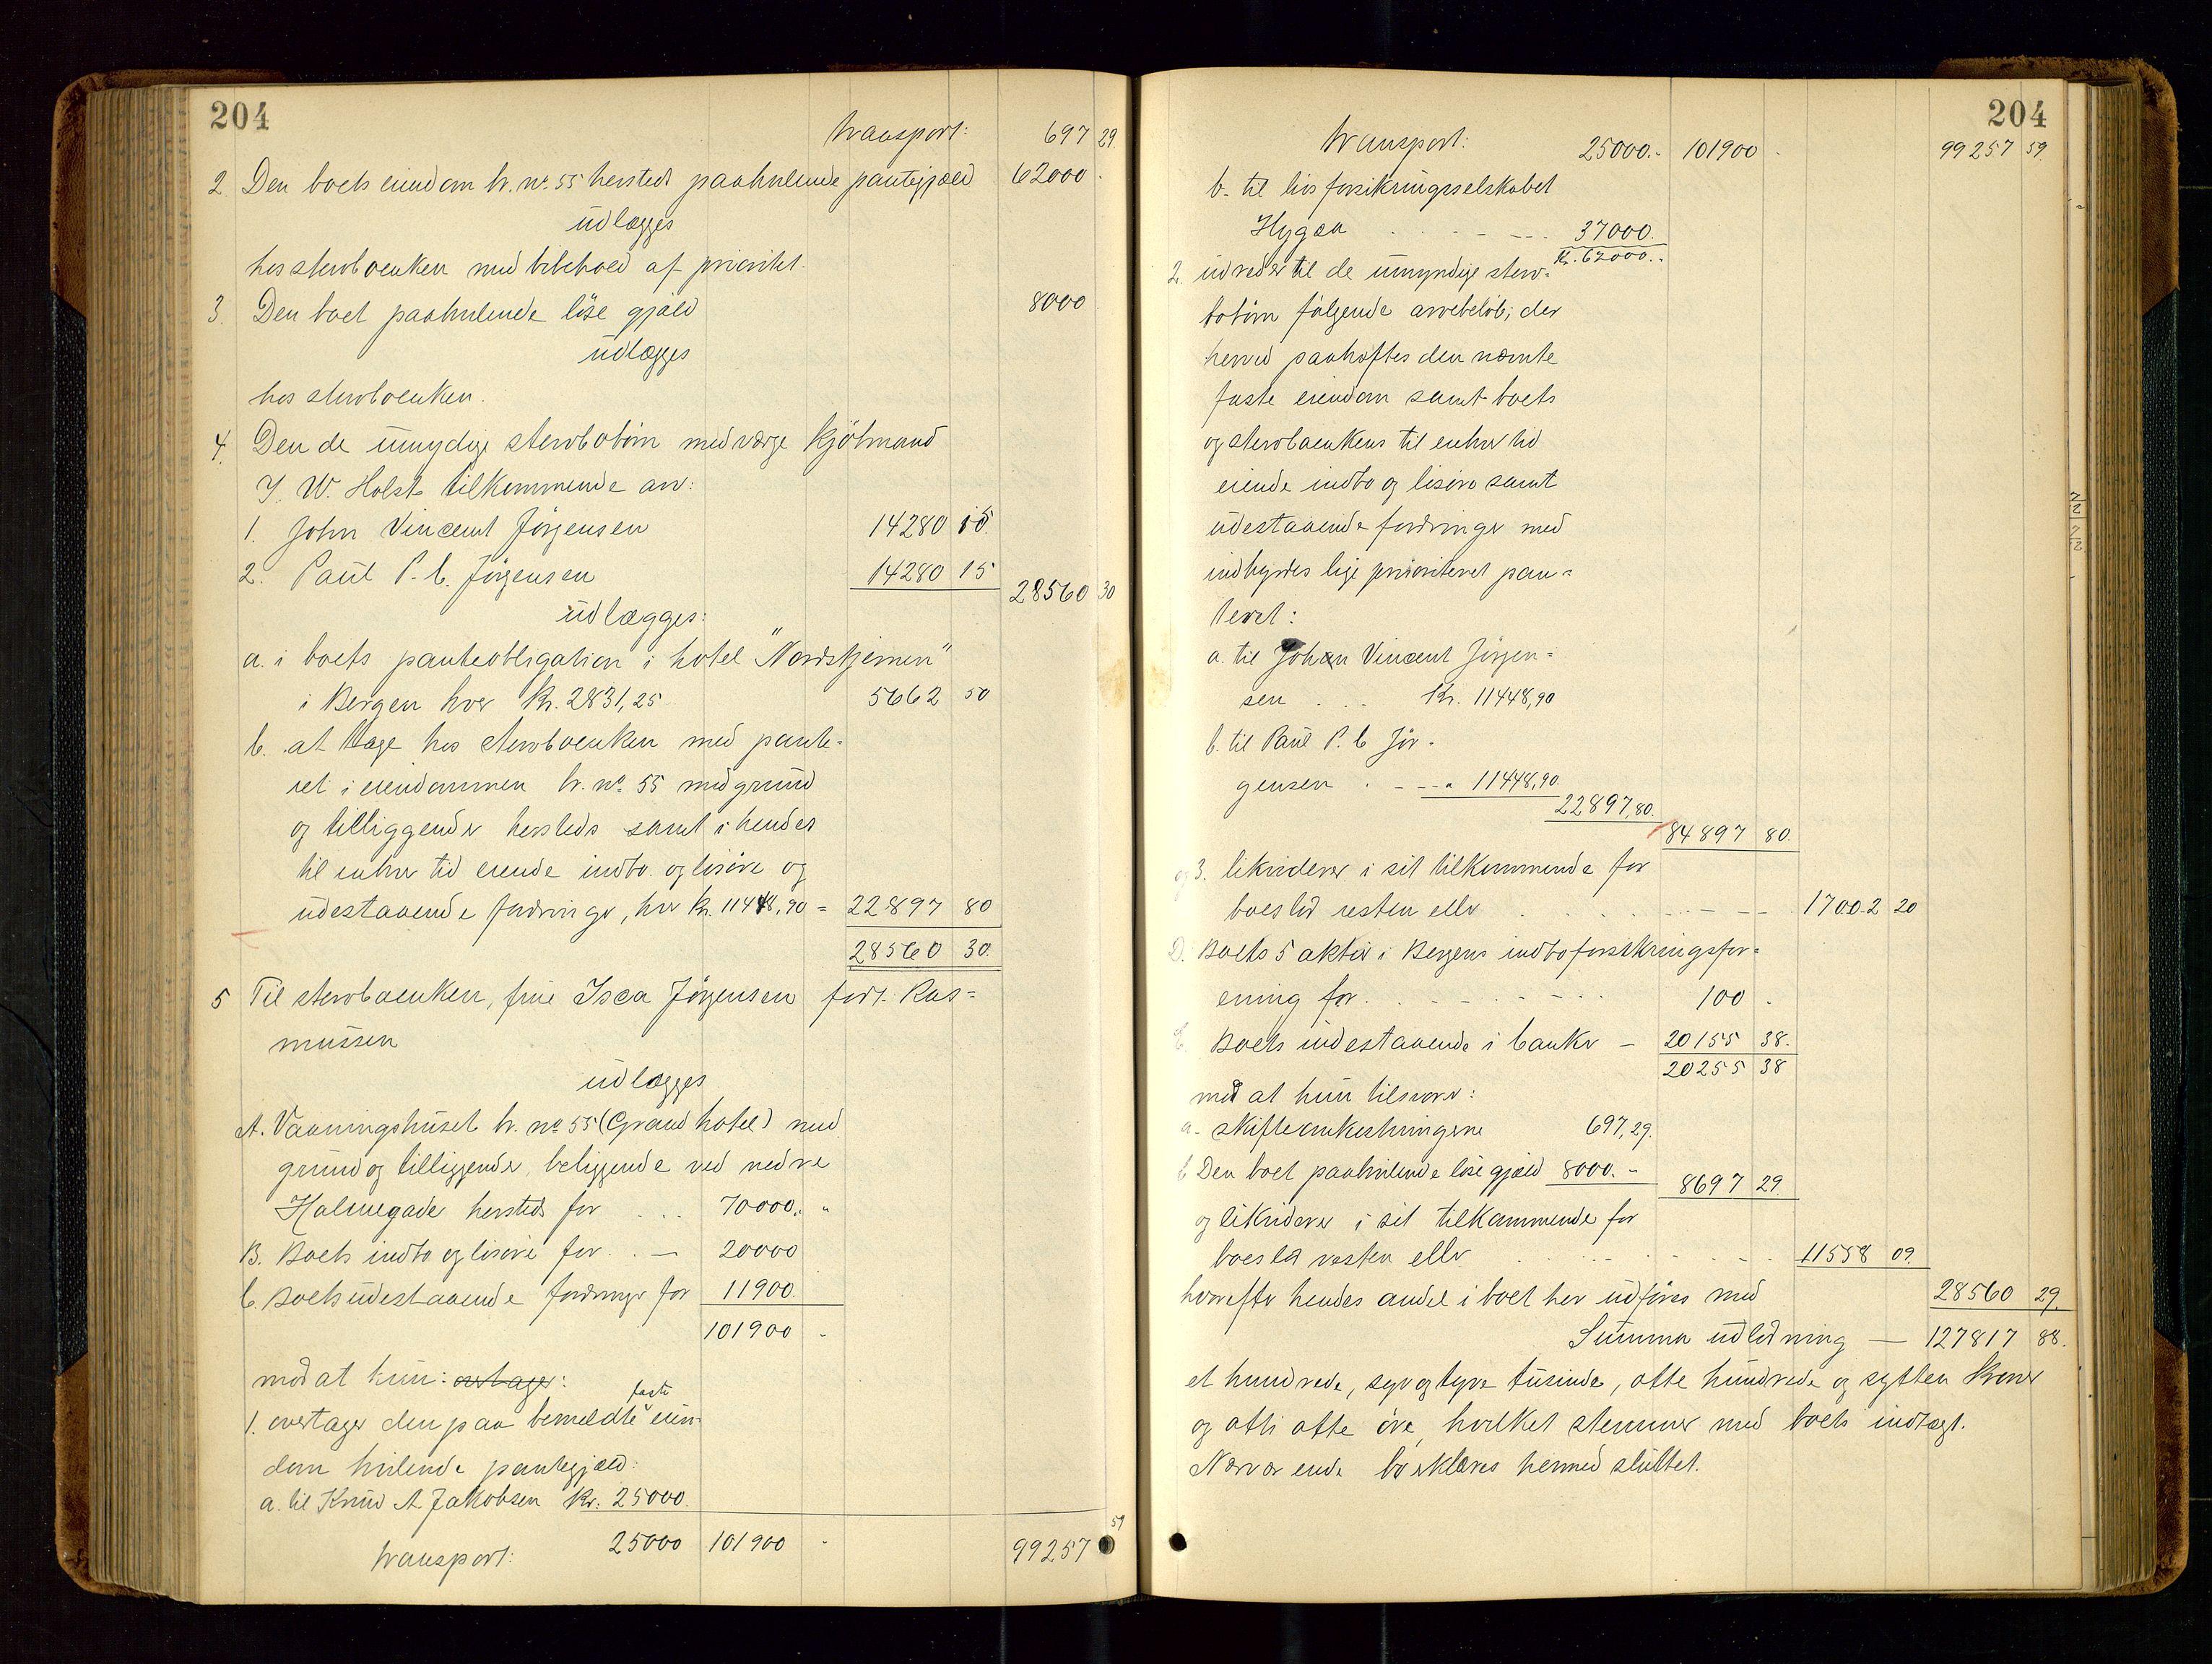 204
transport: 697 29.
2. Den boets eiendom br. no. 55 hersteds paahvilende pantegjæld 62000 -
udlægges
hos sterboenken med bibehold af prioritet.
3. Den boet paahvilende löse gjæld 8000
udlægges
hos sterboenken.
4. Den de umydige sterbobörn med værge kjöbmand
J. W. Holst tilkommende arv:
1. John Vincent Jörgensen 14280 15.
2. Paul P. C. Jörgensen 14280 15
28560 30
udlægges:
a. i boets panteobligation i hotel "Nordstjernen"
i Bergen hver Kr. 2831,25 5662 50
b. at tage hos sterboenken med pante-
ret i eiendommen br. no. 55 med grund
og tilliggender hersteds samt i hendes
til enhver tid eiende indbo og lösöre og
udestaaende fordringer, hver Kr. 11448,90 = 22897 80
28560 30.
5 Til sterboenken, frue Isea Jörgensen födt Ras=
mussen
udlægges
A. Vaaningshuset br. no. 55 (Grand hotel) med
grund og tilliggender, beliggende ved nedre
Holmegade hersteds for ... 70000,. "
B. Boets indbo og lösöre for . . — 20000
C. Boets udestaaende fordringer for 11900.
101900 -
mod at hun: overtager:
1. overtager den paa bemeldte faste eien-
dom hvilende pantegjæld:
a. til Knud A Jakobsen Kr. 25000.
transport: 25000 101900 - 99257 59
204
transport: 25000.- 101900 - 99257 59.
b. til livsforsikringsselskabet
Hygæa . . - - --- 37000.
Kr. 62000.-
2. udreder til de umyndige sterv-
bobörn fölgende arvebelöb, der
herved paahæftes den nævnte
faste eiendom samt boets
og stervboenkens til enhver tid
eiende indbo og lösöre samt
udestaaende fordringer med
indbyrdes lige prioriteret pan=
teret:
a. til Johan Vincent Jörgen=
sen . . . Kr. 11448,90
b. til Paul P. C Jör-
gensen . - --" 11448,90.
22897,80.
84897 80.
og 3. likviderer i sit tilkommende for
boeslod resten eller . . . . . . - -- 17002 20
D. Boets 5 aktier i Bergens indboforsikringsfor=
ening for . - - - - - - 100 -
E. Boets indestaaende i banker — 20155 38.
20255 38
mod at hun tilsvarer:
a- skifteomkostningerne 697,29.
b Den boet paahvilende löse gjæld 8000.- 8697 29.
og likviderer i sit tilkommende for
boeslod resten eller . . . . - - 11558 09.
hvorefter hendes andel i boet her udföres med 28560 29.
Summa udlodning — 127817 88.
et hundrede, syv og tyve tusinde, otte hundrede og sytten kroner
og otti otte öre, hvilket stemmer med boets indtægt.
Nærværende bo erklæres hermed sluttet.